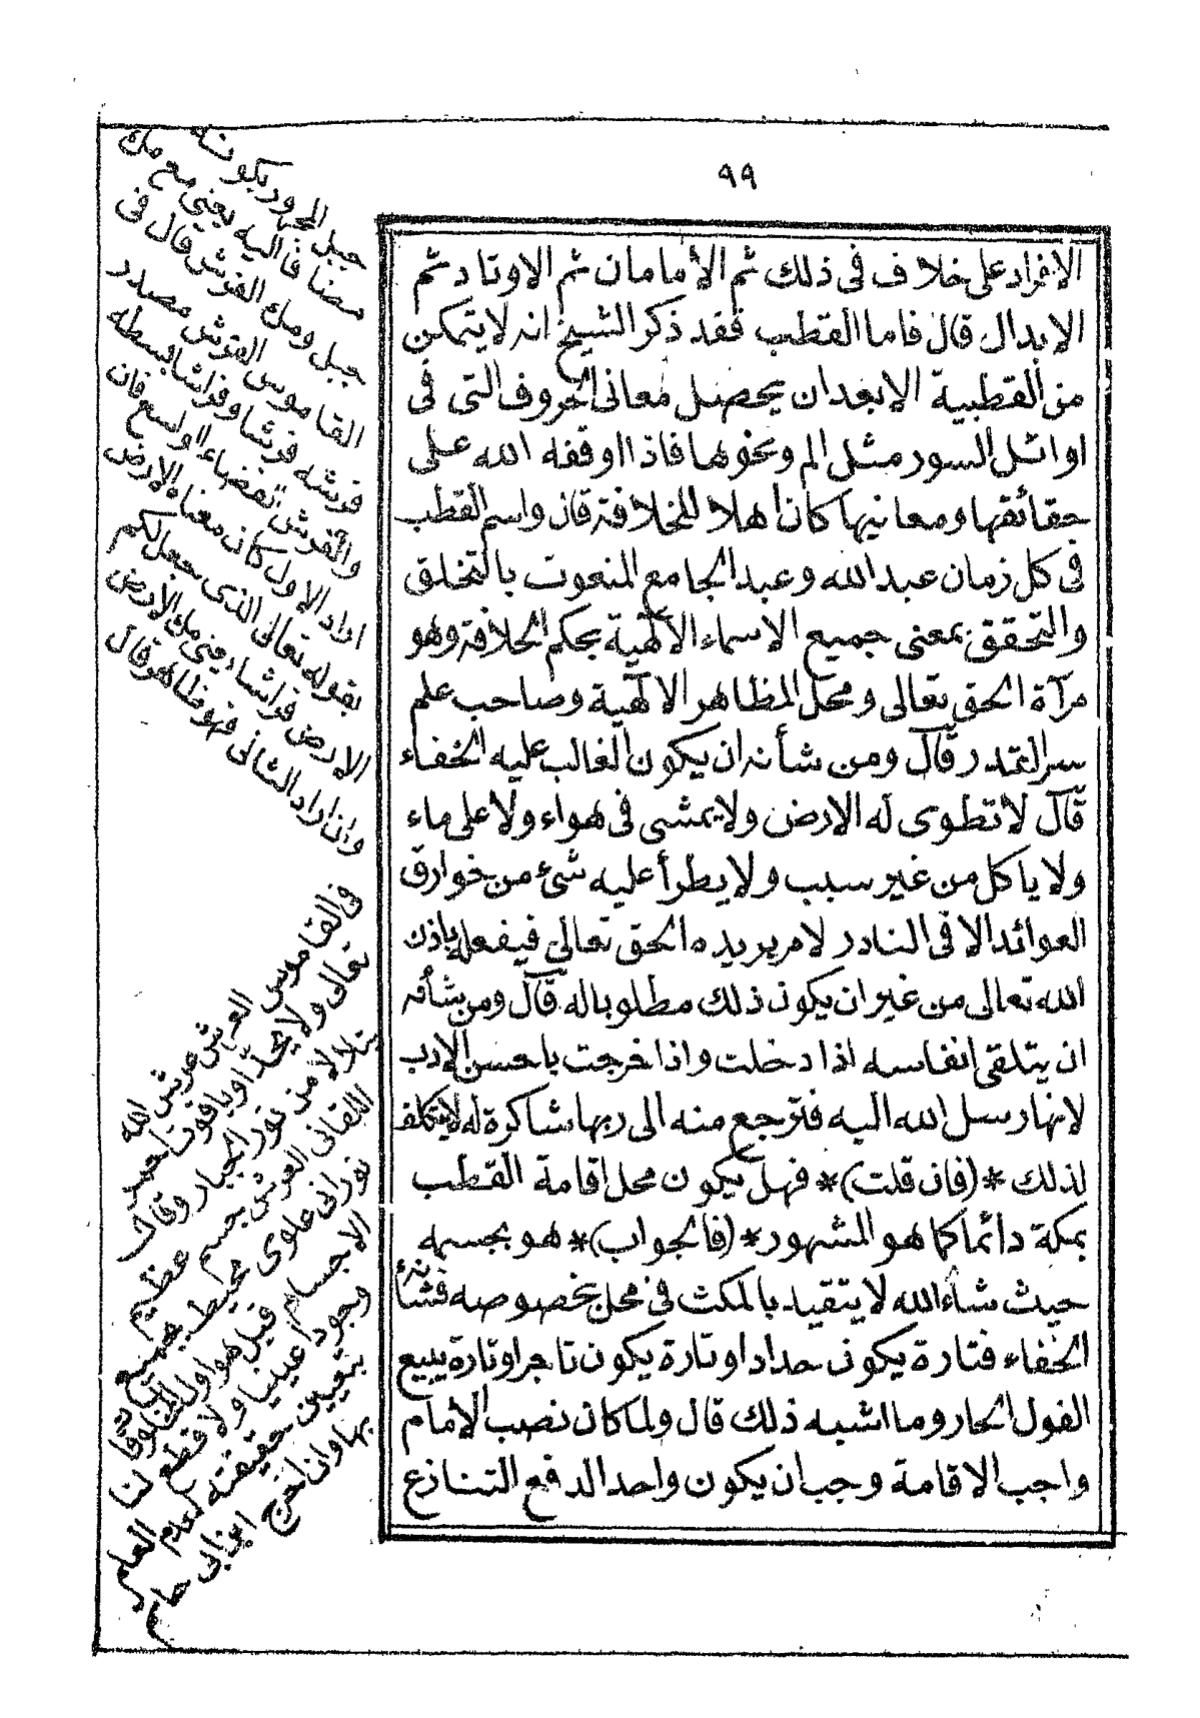 ٩٩
الافراد على خلاف فى ذلك ثم الأمامان ثم الاوتاد ثم
الابدال قال فاما القطب فقد ذكر الشيخ انه لا يتمكن
من القطبية الا بعد ان يحصل معانى الحروف التى فى
اوائل السور مثل الم ونحوها فاذا اوقفه الله على
حقائقها ومعانيها كان اهلا للخلافة قال واسم القطب
فى كل زمان عبد الله وعبد الجامع المنعوت بالتخلق
والتحقق بمعنى جميع الاسماء الألهية بحكم الخلافة وهو
مرآة الحق تعالى ومحل المظاهر الالهية وصاحب علم
سر القدر قال ومن شأنه ان يكون الغالب عليه الخفاء
قال لا تطوى له الارض ولا يمشى فى هواء ولا على ماء
ولا ياكل من غير سبب ولا يطرأ عليه شئ من خوارق
العوائد الا فى النادر لامر يريده الحق تعالى فيفعله باذن
الله تعالى من غير ان يكون ذلك مطلوبا له قال ومن شأنه
ان يتلقى انفاسه اذا دخلت واذا خرجت باحسن الادب
لانها رسل الله اليه فترجع منه الى ربها شاكرة له لا يتكلف
لذلك * (فان قلت) * فهل يكون محل اقامة القطب
بمكة دائما كما هو المشهور * (فالجواب) * هو بجسمه
حيث شاء الله لا يتقيد بالمكث فى محل بخصوصه فشأنه
الخفاء فتارة يكون حدادا وتارة يكون تاجرا وتارة يبيع
الفول الحار وما اشبه ذلك قال ولما كان نصب الأمام
واجب الاقامة وجب ان يكون واحدا لدفع التنازع
جبل المجهود يكونه
مضافا اليه يعنى مع مك
جبل ومك الفرش قال فى
القاموس الفرش مصدر
فرشه فرشا وفراشا بسطه
والفرش الفضاء الواسع فان
اراد الاول كان معناه الارض
بقوله تعالى الذى جعل لكم
الارض فراشا يعنى مك الارض
وان اراد الثانى فهو ظاهر قال
فى القاموس العرش عرش الله
تعالى ولا يحد او ياقوت احمر
يتلالا من نور الجبار وقال
اللقانى العرش جسم عظيم
نورانى علوى محيط بجميع
الاجسام قيل هو اول المخلوقات
وجودا عينيا ولا قطع لنا
بتعيين حقيقته لعدم العلم
بها وان اخرج